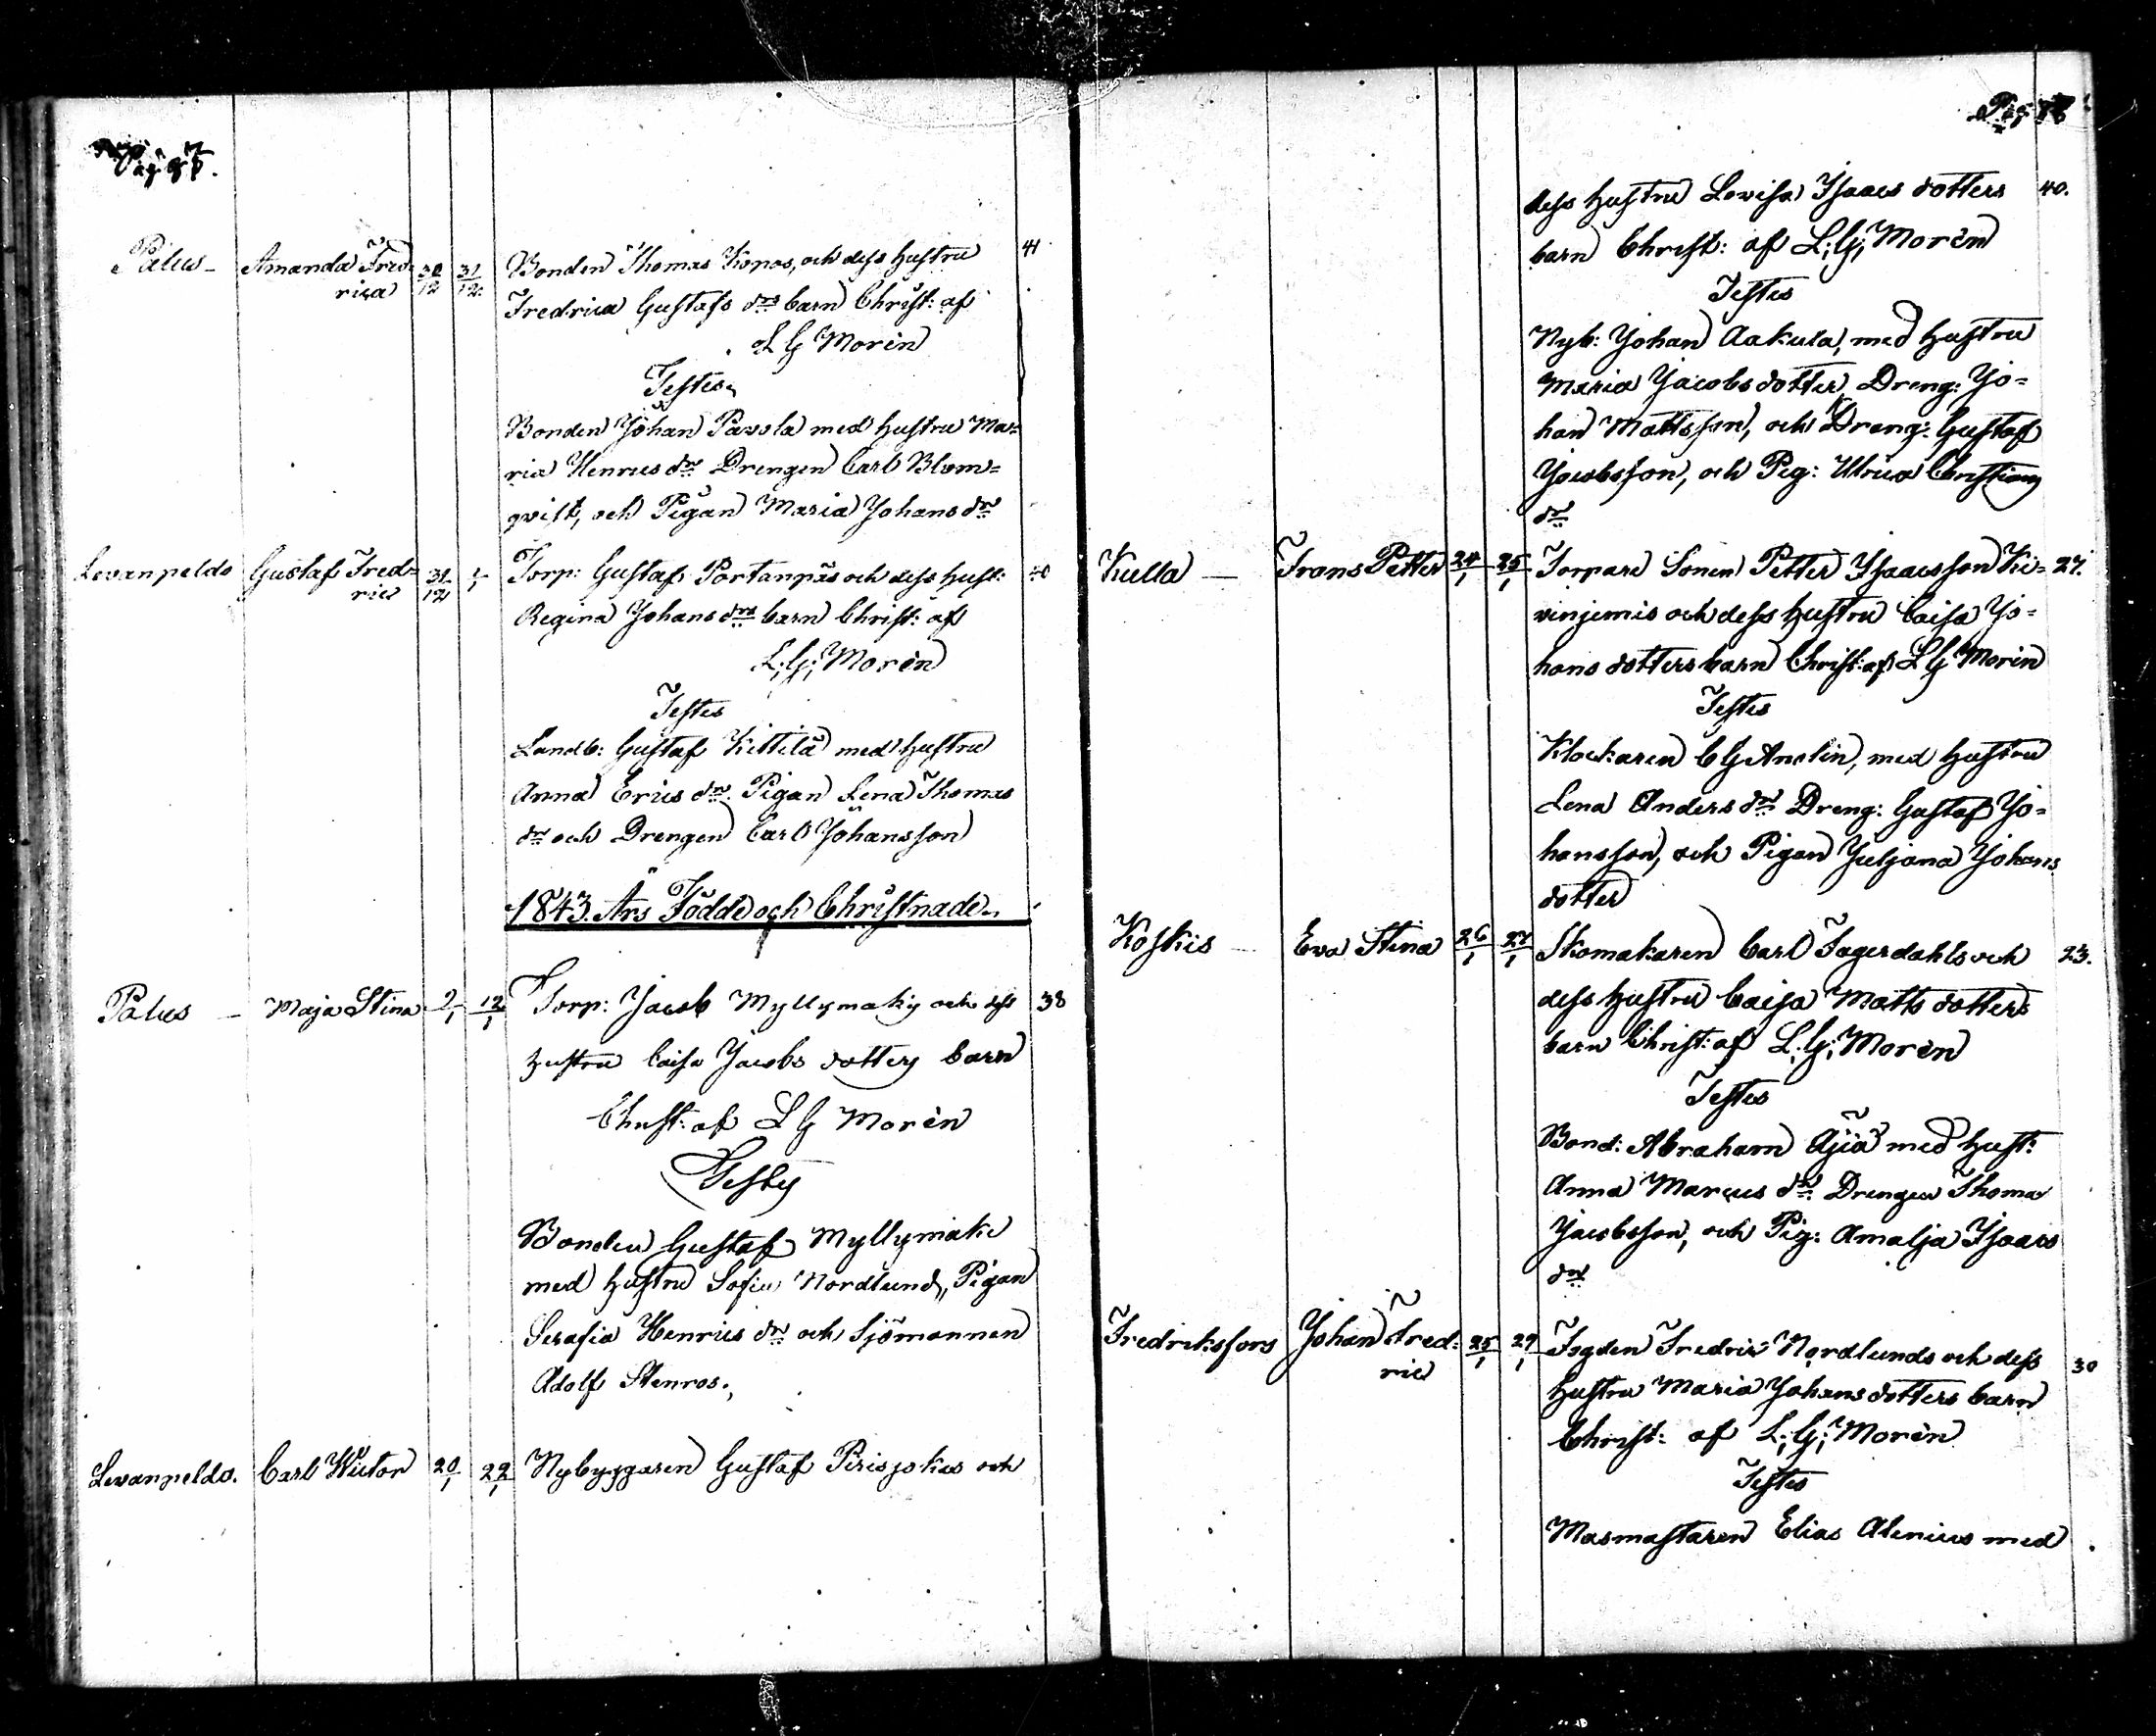 Pag: 87.
Palus - Amanda Fred= 30/12 31/12 Bonden Thomas Konos, och dess hustru 41
rica Fredrica Gustafs drs barn Christ: af
L G Morén
Testes
Bonden Johan Pavola med hustru Ma=
ria Henrics dr Drengen Carl Blom=
qvist, och Pigan Maria Johans dr
Levanpeldo Gustaf Fred= 31/12 1/1 Torp: Gustaf Portanpäs och dess hust: 40
ric Regina Johans drs barn Christ: af
L: G: Morén
Testes
Landb: Gustaf Kittilä med hustru
Anna Erics dr. Pigan Lena Thomas
dr och Drengen Carl Johansson
1843. Års Födde och Christnade
Palus - Maja Stina 9/1 12/1 Torp: Jacob Myllymaky och dess 38
hustru Caisa Jacobs dotters barn
Christ: af L G Morén
Testes
Bonden Gustaf Myllymaki
med hustru Sofia Nordlund, Pigan
Serafia Henrics dr och Sjömannen
Adolf Stenros.
Levanpeldo. Carl Victor 20/1 22/1 Nybyggaren Gustaf Pirisjokus och
Pag
dess hustru Lovisa Isaacs dotters 40.
barn Christ: af L: G: Morén
Testes
Nyb: Johan Aakula, med hustru
Maria Jacobs dotter, Dreng: Jo=
han Mattsson, och Dreng: Gustaf
Jacobsson, och Pig: Ulrica Christians
dr
Kulla - Frans Petter 24/1 25/1 Torpare Sonen Petter Isaacsson Ki= 27.
vinjemis och dess hustru Caisa Jo=
hans dotters barn Christ: af L G Morén
Testes
Klockaren C G Anelin, med hustru
Lena Anders dr Dreng: Gustaf Jo=
hansson, och Pigan Juljana Johans
dotter
Koskis - Eva Stina 26/1 27/1 Skomakaren Carl Fagerdahls och 23.
dess hustru Caisa Matts dotters
barn Christ: af L: G: Morén
Testes
Bond: Abraham Äjiä med hust:
Anna Marcus dr. Drengen Thomas
Jacobsson, och Pig: Amalja Isaacs
dr
Fredriksfors Johan Fred= 25/1 29/1 Fogden Fredric Nordlunds och dess 30
ric hustru Maria Johans dotters barn
Christ: af L: G: Morén
Testes
Masmastaren Elias Alenius med